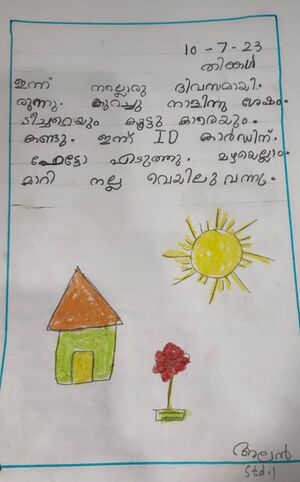 10-7-23
തിങ്കൾ
ഇന്ന് നല്ലൊരു ദിവസമായി.
രുന്നു. കുറച്ചു നാളിനു ശേഷം.
ടീച്ചറെയും കൂട്ടു കാരെയും.
കണ്ടു. ഇന്ന് ID കാർഡിന്.
ഫോട്ടോ എടുത്തു. മഴയെല്ലാം.
മാറി നല്ല വെയിലു വന്നു.
അലൻ
Std.1